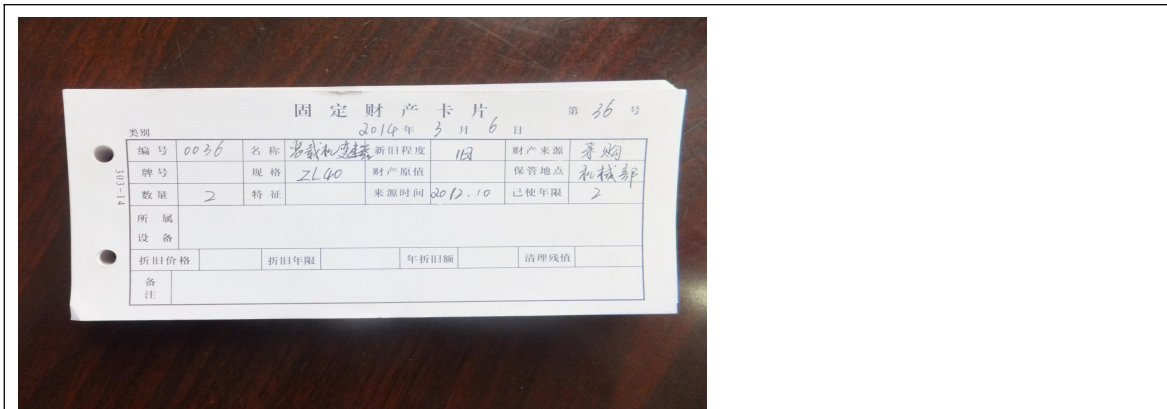 固定财产卡片 第 36 号
类别 2014 年 3 月 6 日
编号 0036 名称 装载机变速器 新旧程度 旧 财产来源 采购
牌号 规格 ZL40 财产原值 保管地点 机械部
数量 2 特征 来源时间 2012.10 已使年限 2
所属
设备
折旧价格 折旧年限 年折旧额 清理残值
备
注
303-14